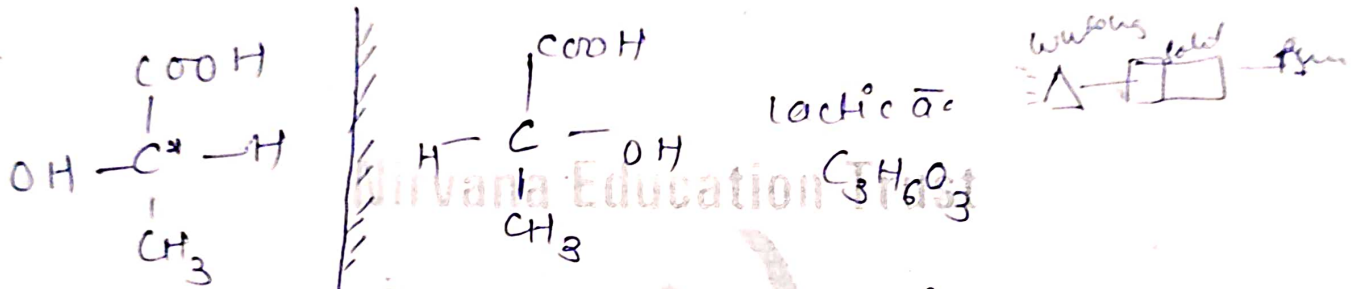 COOH
OH — C* — H
CH3
COOH
H — C — OH
CH3
lactic āc
C3H6O3
Nirvana Education Trust